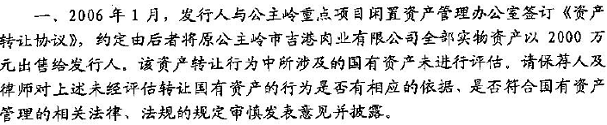 一、2006 年 1 月，发行人与公主岭重点项目闲置资产管理办公室签订《资产
转让协议》，约定由后者将原公主岭市吉港肉业有限公司全部实物资产以 2000 万
元出售给发行人。该资产转让行为中所涉及的国有资产未进行评估。请保荐人及
律师对上述未经评估转让国有资产的行为是否有相应的依据、是否符合国有资产
管理的相关法律、法规的规定审慎发表意见并披露。